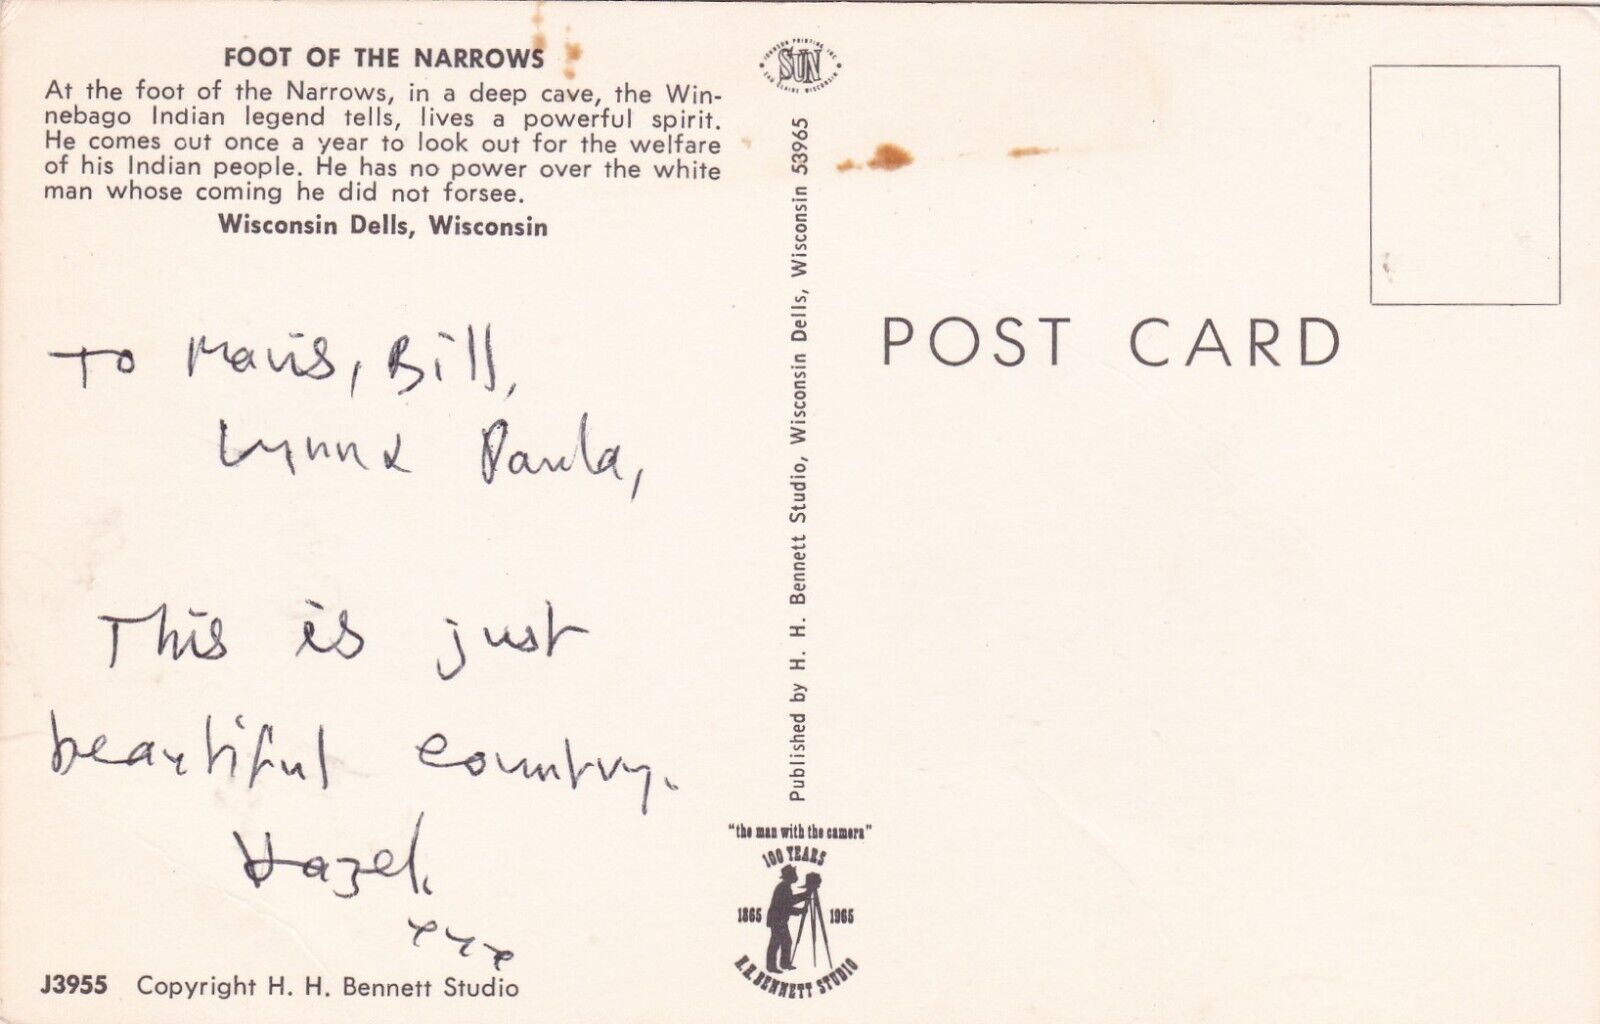 FOOT OF THE NARROWS
At the foot of the Narrows, in a deep cave, the Win-
nebago Indian legend tells, lives a powerful spirit.
He comes out once a year to look out for the welfare
of his Indian people. He has no power over the white
man whose coming he did not forsee.
Wisconsin Dells, Wisconsin
To Mavis, Bill,
Lynn & Paula,
This is just
beautiful country.
Hazel.
xxx
J3955 Copyright H. H. Bennett Studio
JOHNSON PRINTING INC.
SUN
EAU CLAIRE WISCONSIN
Published by H. H. Bennett Studio, Wisconsin Dells, Wisconsin 53965
"the man with the camera"
100 YEARS
1865 1965
H.H. BENNETT STUDIO
POST CARD